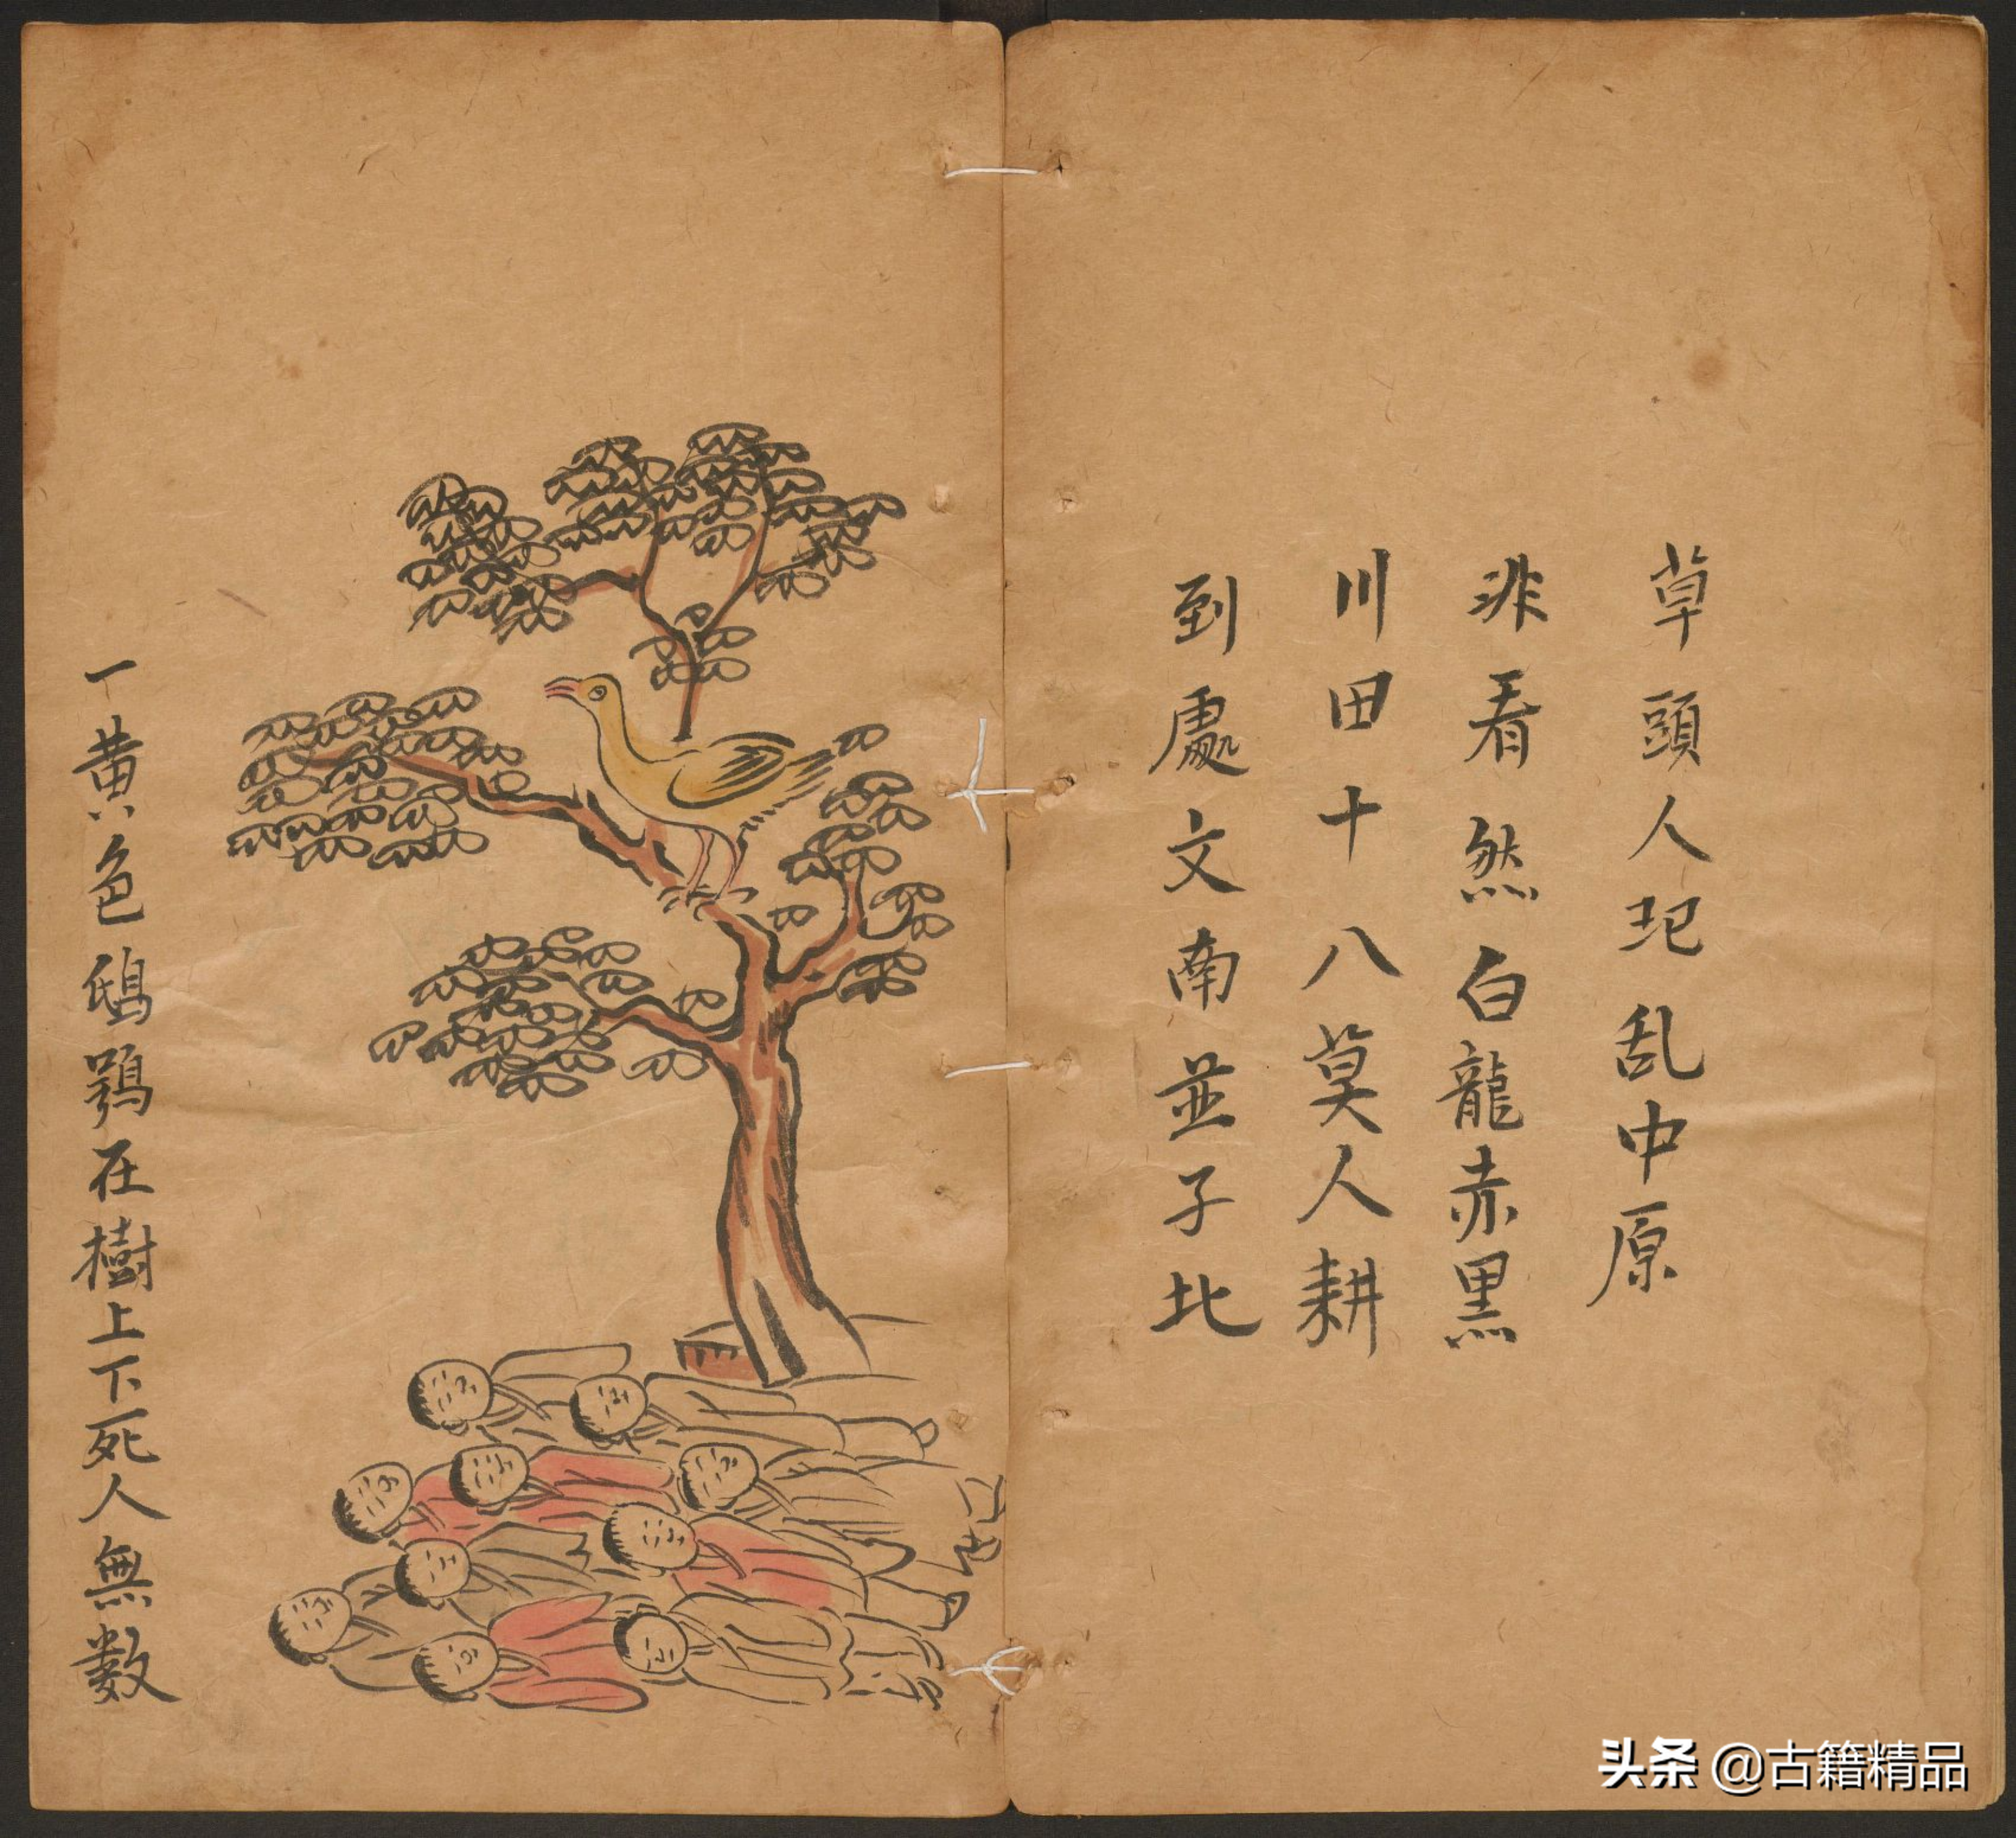 草頭人圯乱中原
非看然白龍赤黑
川田十八莫人耕
到處文南並子北
一黄色鴟鴞在樹上下死人無数
头条 @古籍精品